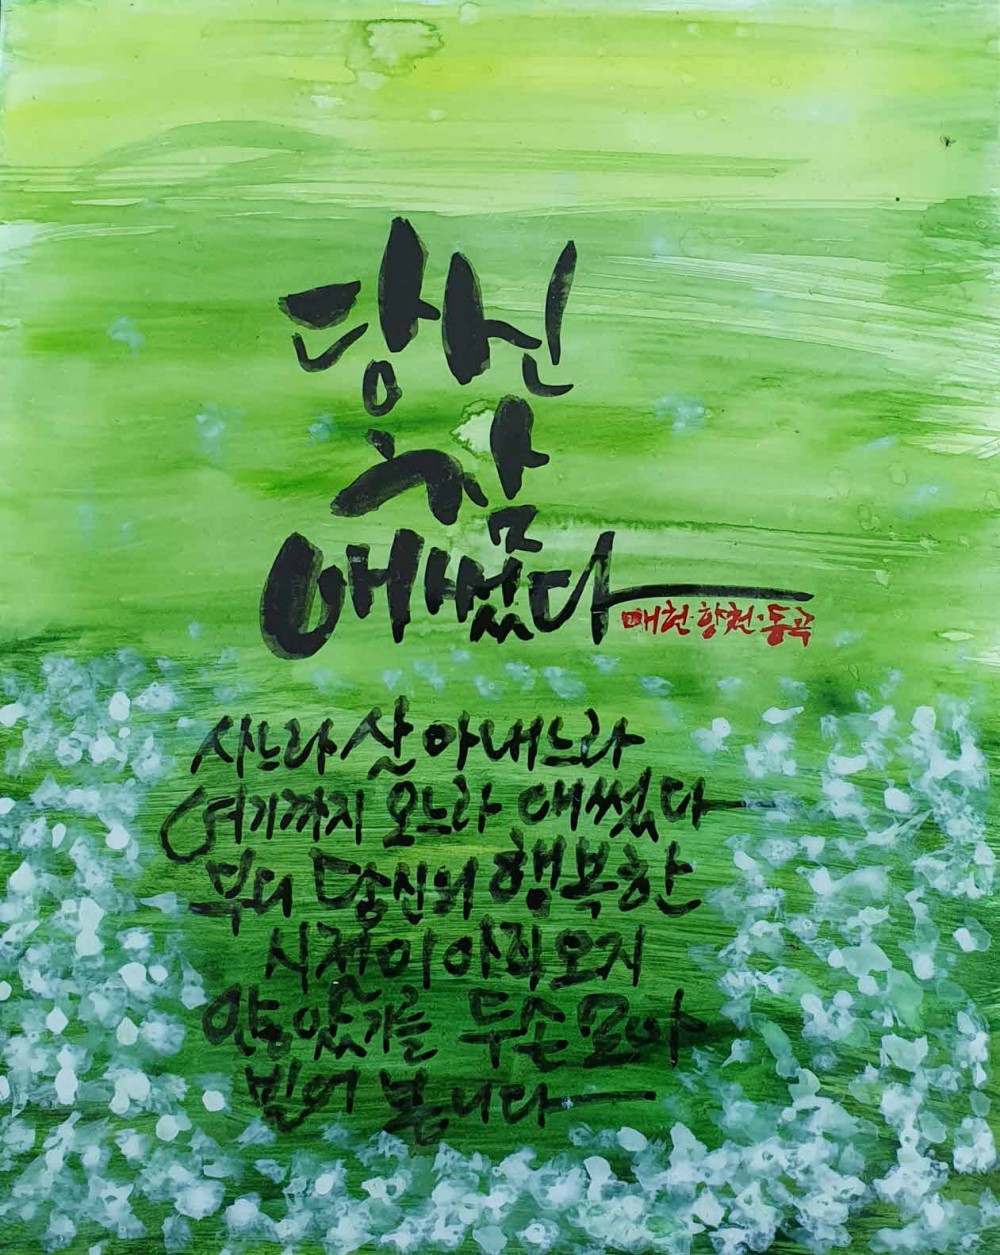 당신
참
애썼다
매헌·향천·동곡
사느라 살아내느라
여기까지 오느라 애썼다
부디 당신의 행복한
시절이 아직 오지
않았기를 두손모아
빌어 봅니다